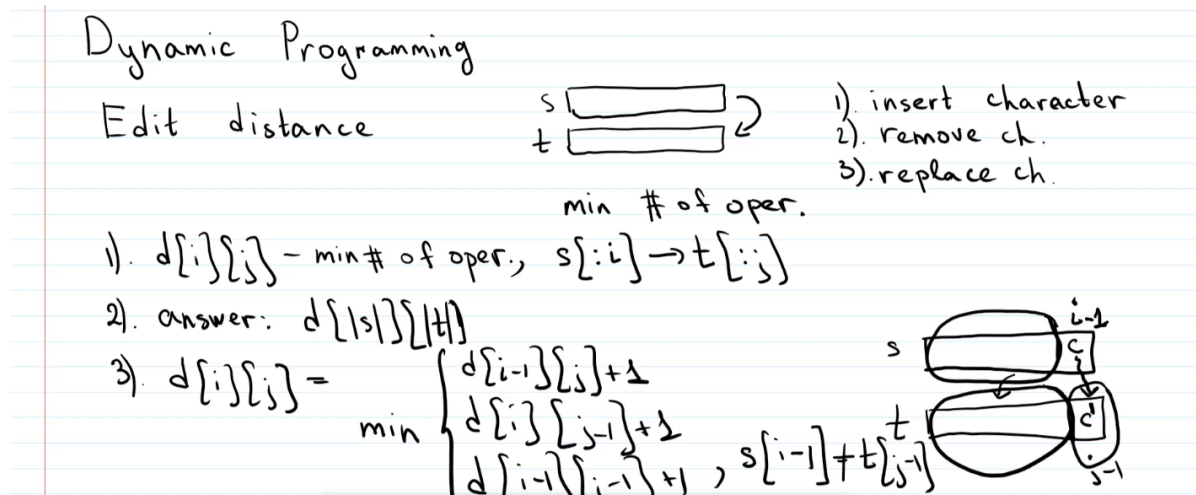 Dynamic Programming
Edit distance
s
t
1). insert character
2). remove ch.
3). replace ch.
min # of oper.
1). d[i][j] - min # of oper., s[:i] → t[:j]
2). answer: d[|s|][|t|]
3). d[i][j] =
min
d[i-1][j]+1
d[i][j-1]+1
d[i-1][j-1]+1, s[i-1]≠t[j-1]
s
i-1
c
t
d
j-1